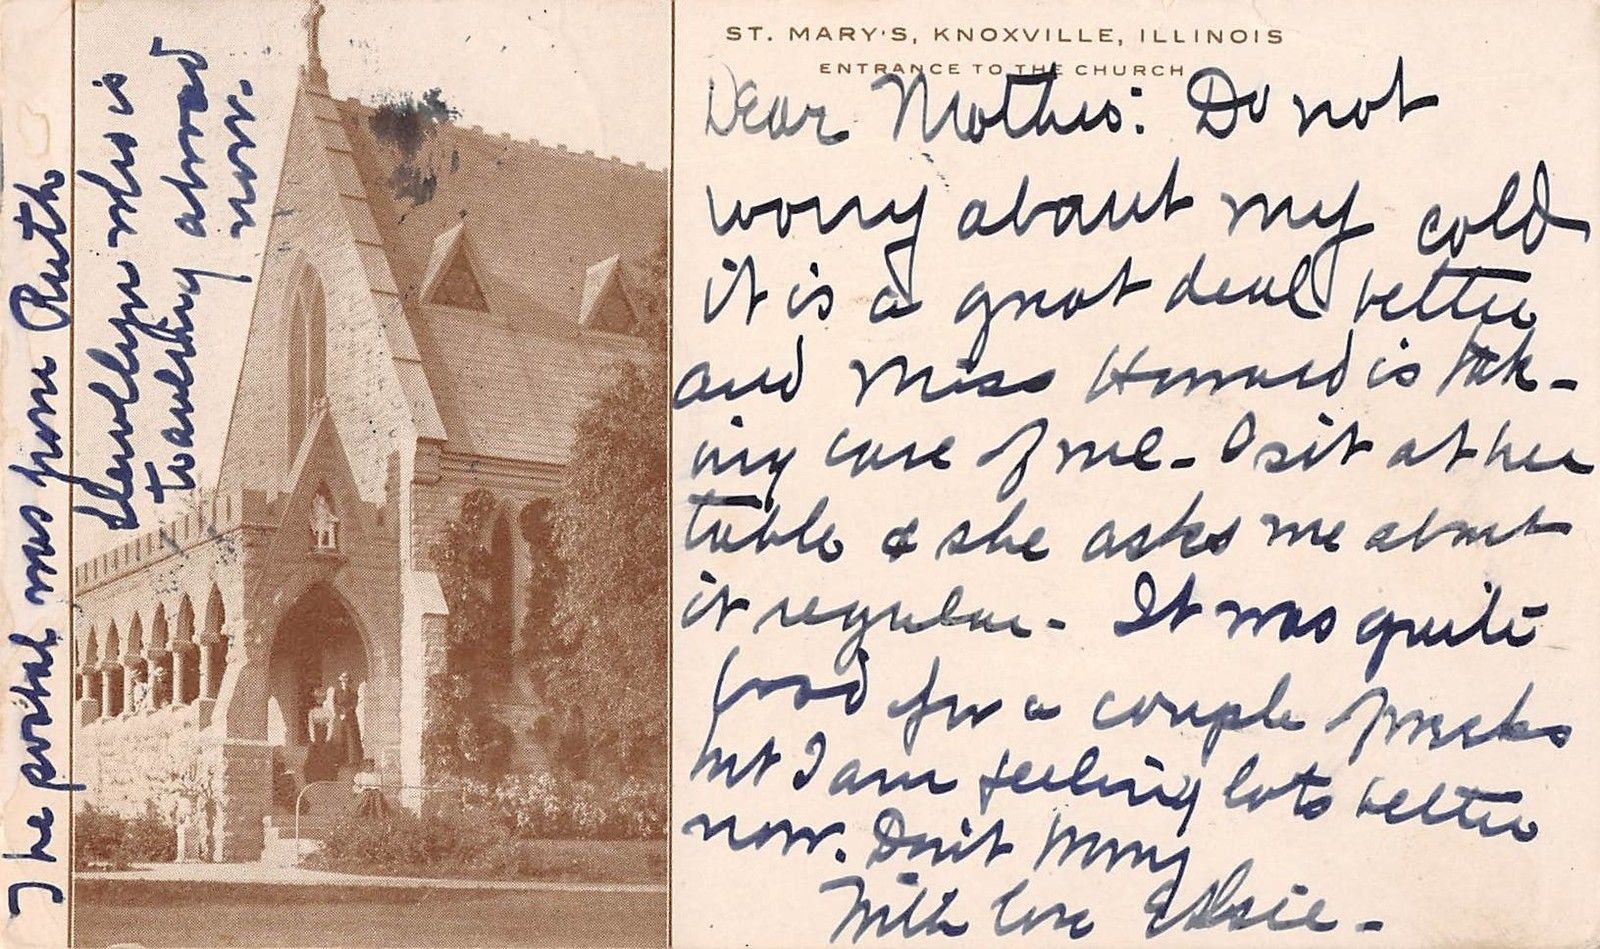 ST. MARY'S, KNOXVILLE, ILLINOIS
ENTRANCE TO THE CHURCH
Dear Mother: Do not
worry about my cold
it is a great deal better
and Miss Howard is tak-
ing care of me - I sit at her
table & she asks me about
it regular - It was quite
bad for a couple of weeks
but I am feeling lots better
now. Don't worry
With love Elsie -
The postal was from Ruth
Llewellyn who is
traveling abroad
now.